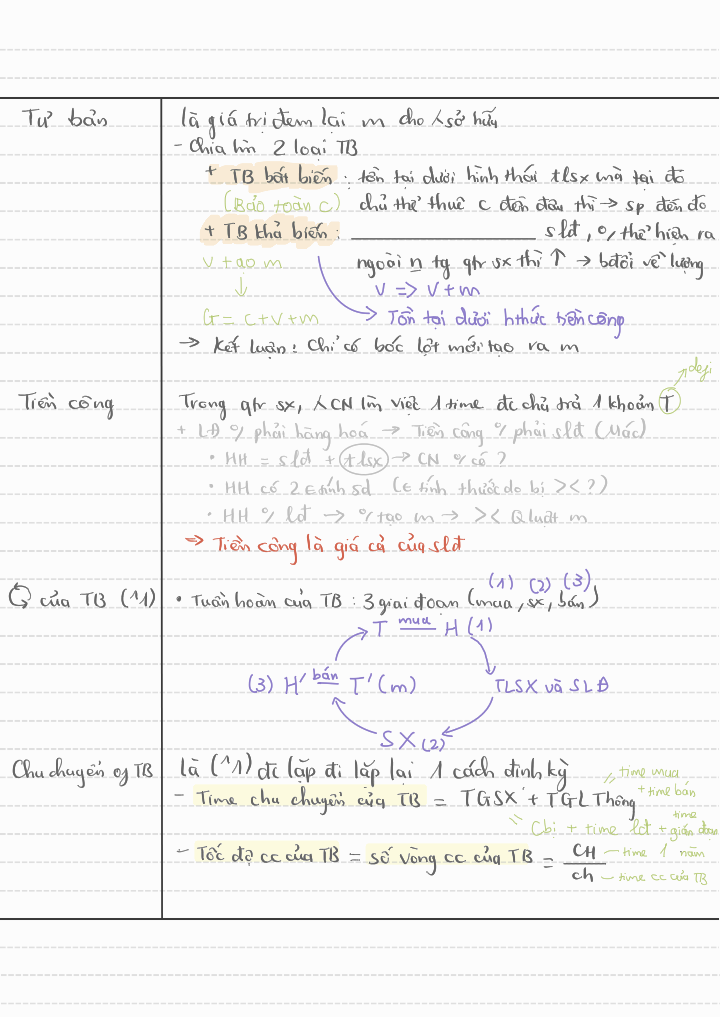 Tư bản
là giá trị đem lại m cho λ sở hữu
- Chia lm 2 loại TB
+ TB bất biến : tồn tại dưới hình thái tlsx mà tại đó
(Bảo toàn c) chủ thể thuê c đến đâu thì → sp đến đó
+ TB khả biến : ________ slđ, 0/ thể hiện ra
v tạo m ngoài n tg qtr sx thì ↑ → bđổi về lượng
v => v + m
↓
G = c + v + m → Tồn tại dưới hthức tiền công
→ Kết luận : Chỉ có bóc lột mới tạo ra m
Tiền công
Trong qtr sx, λ CN lm việc 1 time đc chủ trả 1 khoản T
+ LĐ 0/ phải hàng hoá → Tiền công 0/ phải slđ (Mác)
• HH = slđ + tlsx → CN 0/ có ?
• HH có 2 ∈ tính sd (∈ tính thước đo bị >< ?)
• HH 0/ lđ → 0/ tạo m → >< Q luật m
=> Tiền công là giá cả của slđ
của TB (11)
(1) (2) (3)
• Tuần hoàn của TB : 3 giai đoạn (mua, sx, bán)
T mua H (1)
(3) H' bán T' (m)
TLSX và SLĐ
SX (2)
Chu chuyển of TB
là (11) đc lặp đi lặp lại 1 cách định kỳ
time mua
+ time bán
- Time chu chuyển của TB = TGSX + TGLThông
time
Cbi + time lđ + gián đoạn
- Tốc độ cc của TB = số vòng cc của TB = CH/ch
time 1 năm
time cc của TB